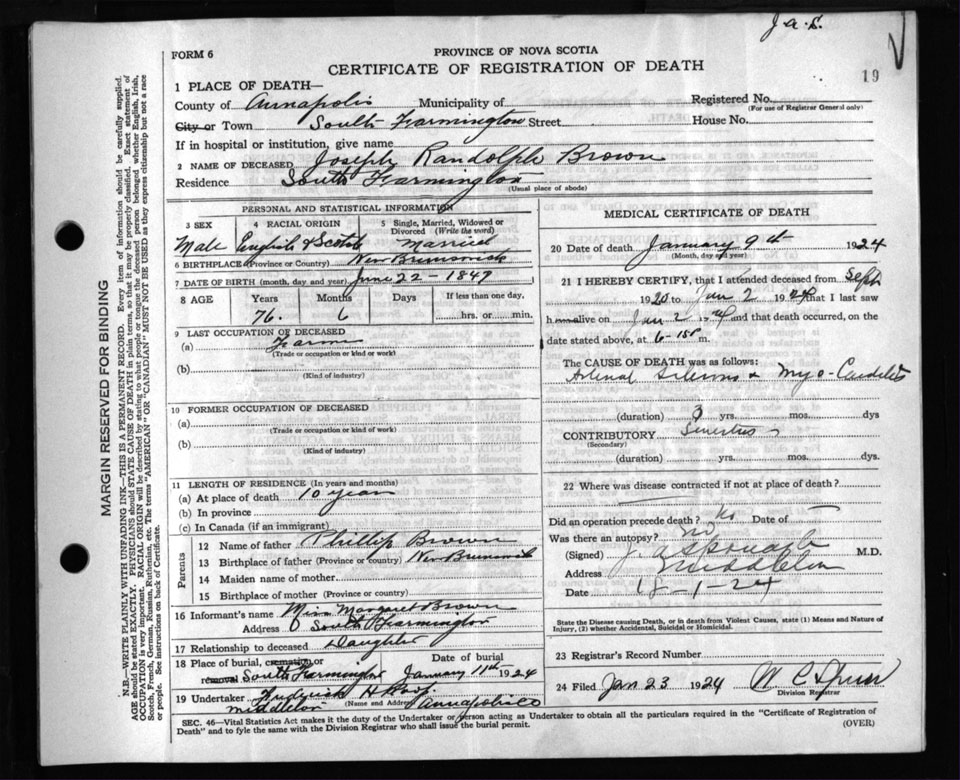 J a.
FORM 6
19
PROVINCE OF NOVA SCOTIA
CERTIFICATE OF REGISTRATION OF DEATH
1 PLACE OF DEATH—
County of Annapolis Municipality of
Registered No.
(For use of Registrar General only)
City or Town South Farmington Street House No.
If in hospital or institution, give name
2 NAME OF DECEASED Joseph Randolph Brown
Residence South Farmington
(Usual place of abode)
PERSONAL AND STATISTICAL INFORMATION
3 SEX 4 RACIAL ORIGIN 5 Single, Married, Widowed or Divorced (Write the word)
Male English & Scotch Married
6 BIRTHPLACE (Province or Country) New Brunswick
7 DATE OF BIRTH (month, day and year) June 22 - 1847
8 AGE Years Months Days If less than one day.
76. 6 hrs. or min.
9 LAST OCCUPATION OF DECEASED
(a) Farmer
(Trade or occupation or kind or work)
(b)
(Kind of industry)
10 FORMER OCCUPATION OF DECEASED
(a)
(Trade or occupation or kind of work)
(b)
(Kind of industry)
11 LENGTH OF RESIDENCE (In years and months)
(a) At place of death 10 years
(b) In province
(c) In Canada (if an immigrant)
Parents
12 Name of father Phillip Brown
13 Birthplace of father (Province or country) New Brunswick
14 Maiden name of mother
15 Birthplace of mother (Province or Country)
16 Informant's name Miss Margaret Brown
Address South Farmington
17 Relationship to deceased Daughter
18 Place of burial, cremation or removal South Farmington Date of burial January 11th 1924
19 Undertaker Fredrick H
(Name and Address)
Middleton Annapolis Co
MEDICAL CERTIFICATE OF DEATH
20 Date of death January 9th 1924
(Month, day and year)
21 I HEREBY CERTIFY, that I attended deceased from Sept
1920 to Jan 2 1924 that I last saw
h alive on Jan 2 1924 and that death occurred, on
date stated above, at 6-15 P m.
The CAUSE OF DEATH was as follows:
Myo-Carditis
(duration) 3 yrs. mos. days
CONTRIBUTORY
(Secondary)
(duration) yrs. mos. dys.
22 Where was disease contracted if not at place of death?
Did an operation precede death? No Date of —
Was there an autopsy? no
(Signed) J. A. Sponagle M.D.
Address Middleton
Date 18-1-24
State the Disease causing Death, or in death from Violent Causes, state (1) Means and Nature of Injury, (2) whether Accidental, Suicidal or Homicidal.
23 Registrar's Record Number
24 Filed Jan 23 1924 W C
Division Registrar
SEC. 46—Vital Statistics Act makes it the duty of the Undertaker or person acting as Undertaker to obtain all the particulars required in the "Certificate of Registration of
Death" and to fyle the same with the Division Registrar who shall issue the burial permit.
(OVER)
MARGIN RESERVED FOR BINDING
N.B.—WRITE PLAINLY WITH UNFADING INK—THIS IS A PERMANENT RECORD. Every item of information should be carefully supplied.
AGE should be stated EXACTLY. PHYSICIANS should STATE CAUSE OF DEATH in plain terms, so that it may be properly classified. Exact statement of
OCCUPATION is very important. RACIAL ORIGIN will be described by stating to what people or tongue the deceased person belonged whether English, Irish,
Scotch, French, German, Russian, Ruthenian, etc. The terms "AMERICAN" OR "CANADIAN" MUST NOT BE USED as they express citizenship but not a race
or people. See instructions on back of Certificate.